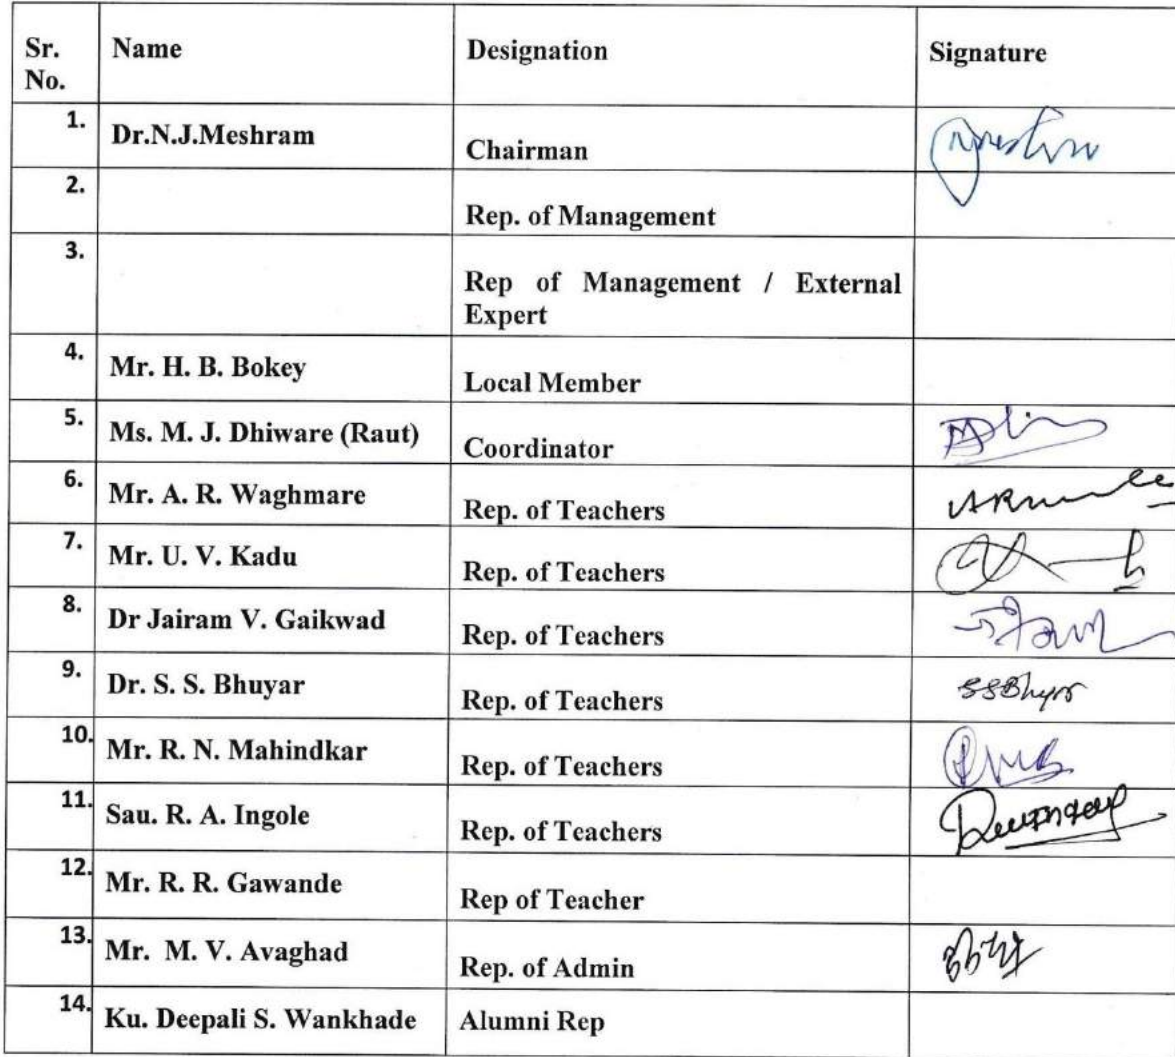 Sr. No. Name Designation Signature
1. Dr.N.J.Meshram Chairman
2. Rep. of Management
3. Rep of Management / External
Expert
4. Mr. H. B. Bokey Local Member
5. Ms. M. J. Dhiware (Raut) Coordinator
6. Mr. A. R. Waghmare Rep. of Teachers
7. Mr. U. V. Kadu Rep. of Teachers
8. Dr Jairam V. Gaikwad Rep. of Teachers
9. Dr. S. S. Bhuyar Rep. of Teachers
10. Mr. R. N. Mahindkar Rep. of Teachers
11. Sau. R. A. Ingole Rep. of Teachers
12. Mr. R. R. Gawande Rep of Teacher
13. Mr. M. V. Avaghad Rep. of Admin
14. Ku. Deepali S. Wankhade Alumni Rep